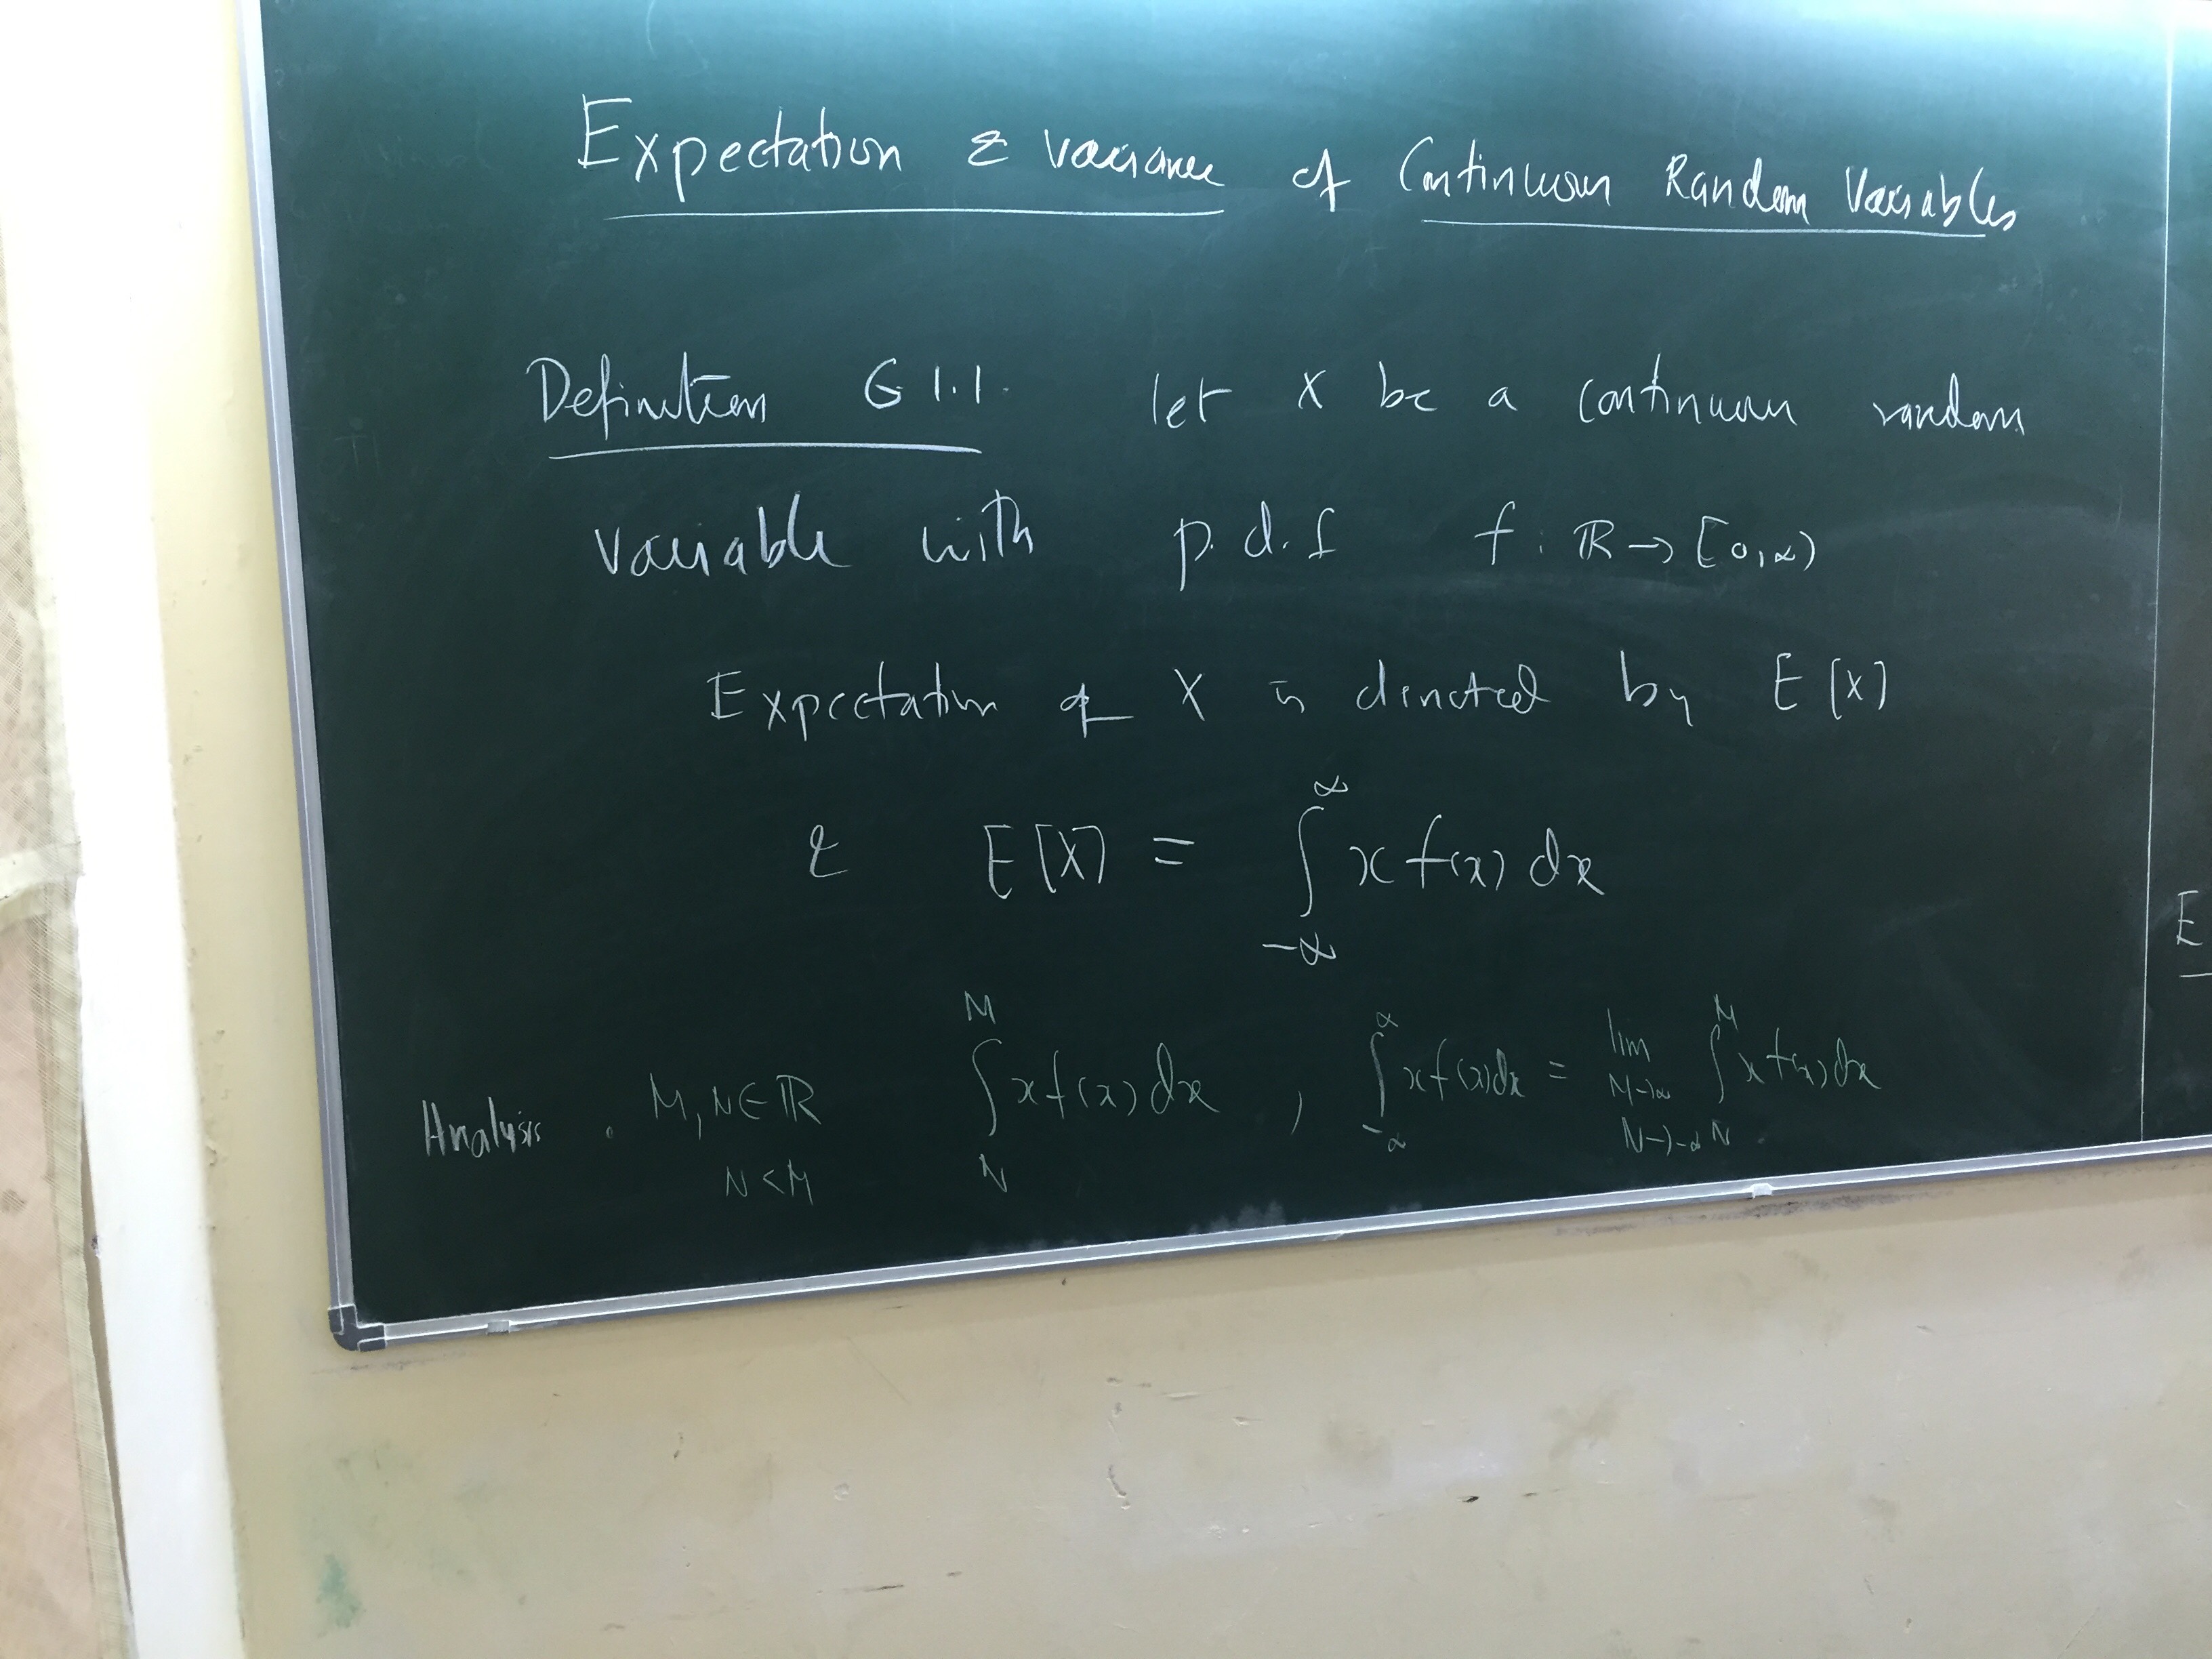 Expectation & variance of Continuous Random Variables
Definition 6.1.1. let X be a continuous random
variable with p.d.f f: ℝ → [0,∞)
Expectation of X is denoted by E[X]
& E[X] = ∫_{-∞}^{∞} x f(x) dx
Analysis. M, N ∈ ℝ N < M ∫_N^M x f(x) dx , ∫_{-∞}^{∞} x f(x) dx = lim_{M→∞ N→-∞} ∫_N^M x f(x) dx
E